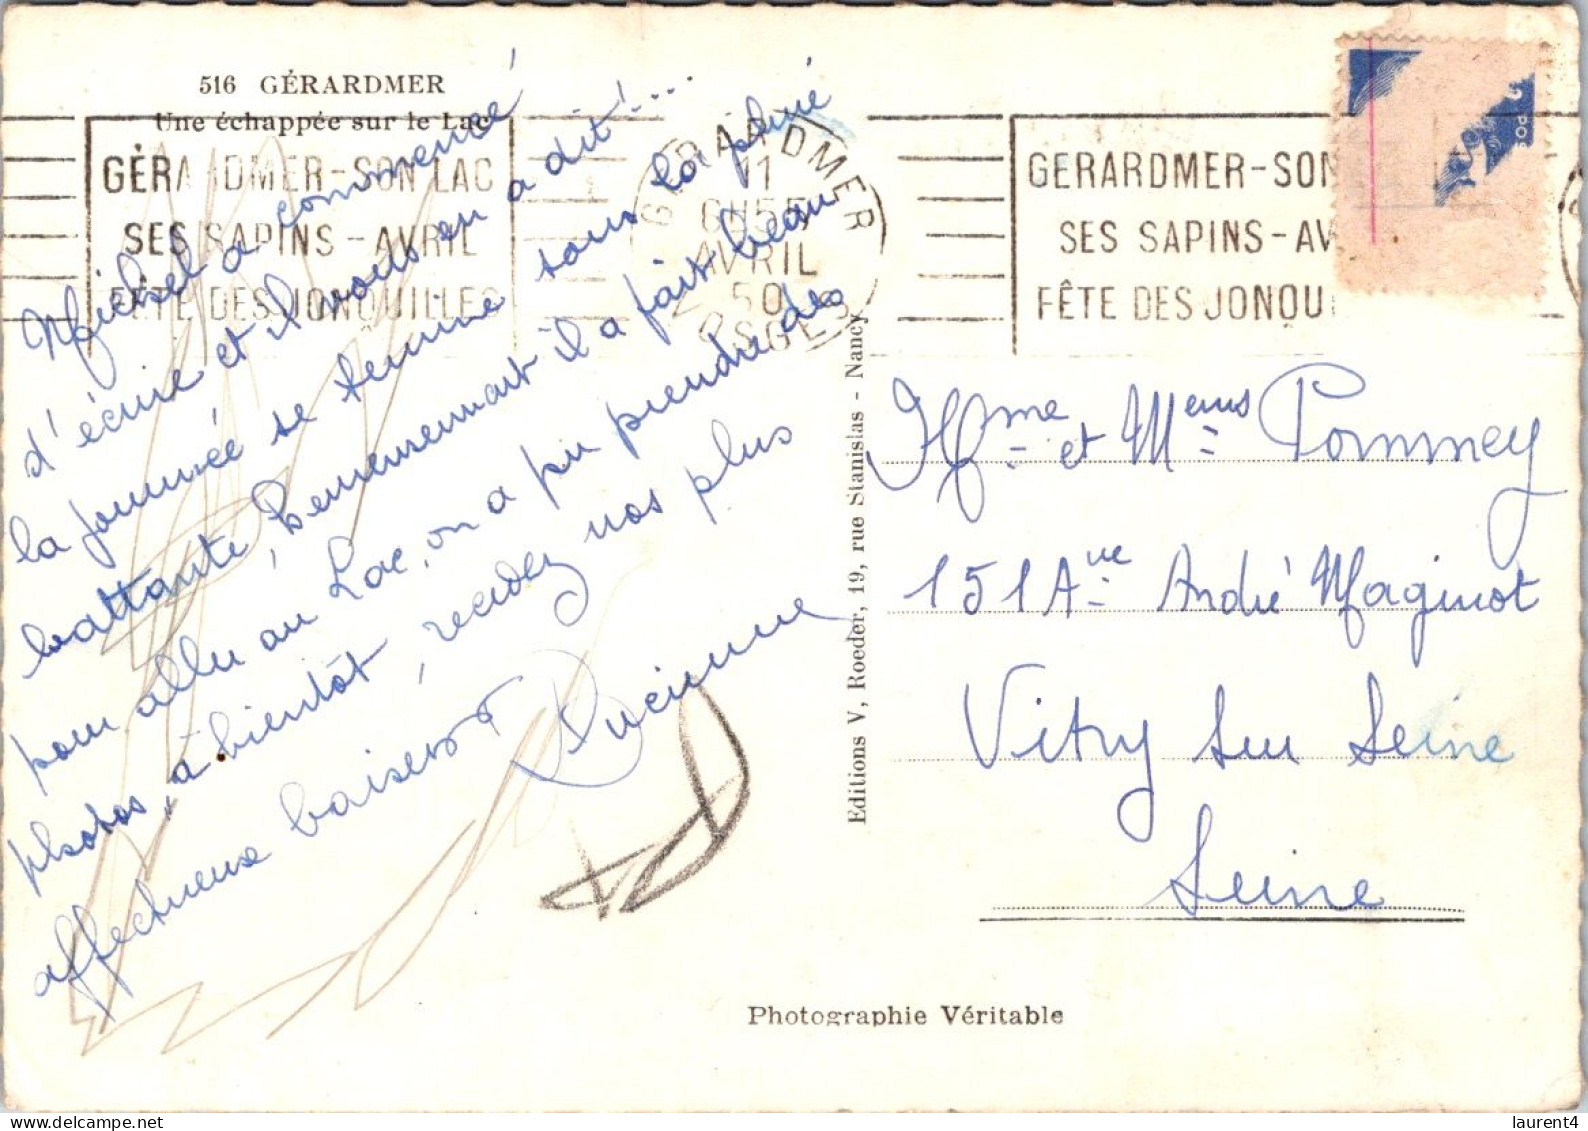 516 GÉRARDMER
Une échappée sur le Lac
GÉRARDMER-SON LAC
SES SAPINS-AVRIL
FÊTE DES JONQUILLES
GERARDMER
11
AVRIL
50
VOSGES
GERARDMER-SON
SES SAPINS-AV
FÊTE DES JONQU
Michel a commencé
d'écrire et il vous en a dit!....
la journée se termine sous la pluie
battante, heureusement il a fait beau
pour aller au Lac, on a pu prendre des
photos, à bientôt, recevez nos plus
affectueux baisers
Lucienne
Editions V, Roeder, 19, rue Stanislas - Nancy
Mme et Mens Pommey
151 Aue André Maginot
Vitry sur Seine
Seine
Photographie Véritable
laurent4